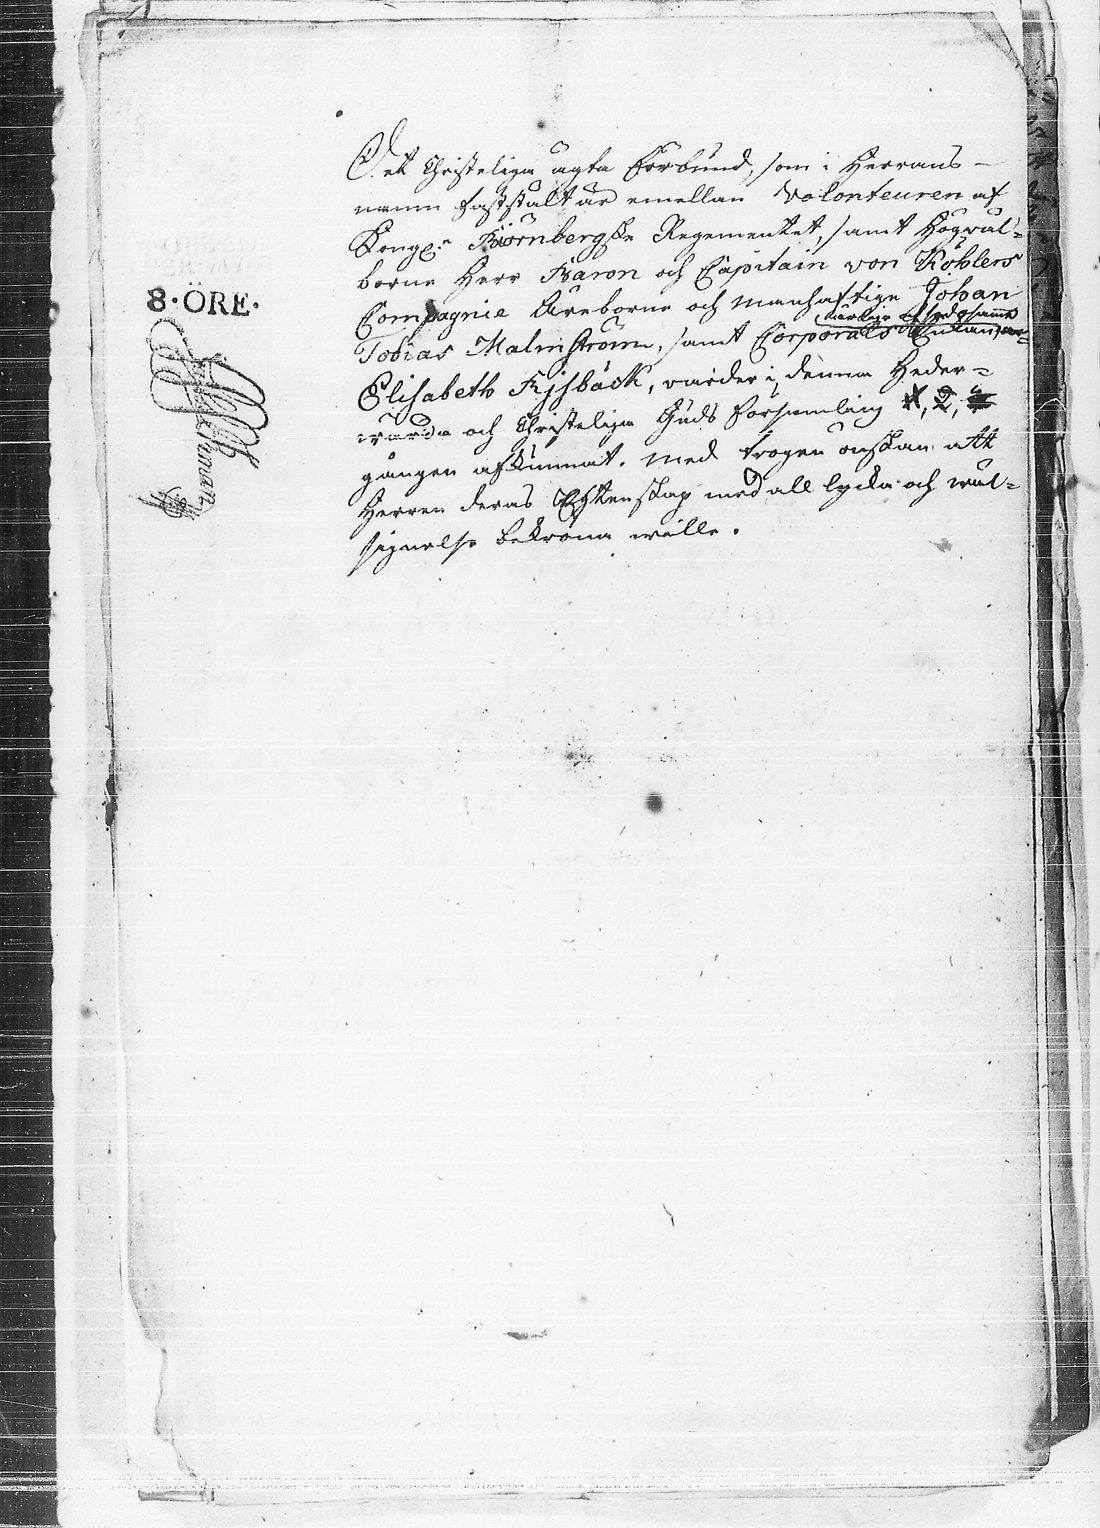 Det Christeliga ägta Förbund, som i Herrans
namn fastställt är emellan Volonteuren af
Kongl:n Biörnbergske Regementet, samt Högväl=
borne Herr Baron och Capitain von Köhlers
Compagnie Äreborne och Manhaftige Johan
Tobias Malmström, samt Corporals
Elisabeth Rijsbäck, warder i denna Heder=
warda och Christeliga Guds Församling 1, 2,
gången afkunnat. Med trogen önskan att
Herren deras Echtenskap med all lycka och wäl=
signelse bekröna wille.
8·ÖRE·